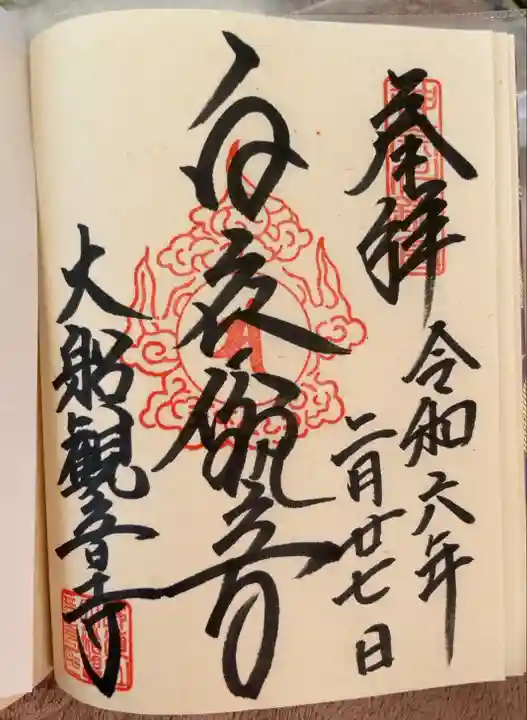 奉拝
令和六年
二月廿七日
白衣観音
大船觀音寺